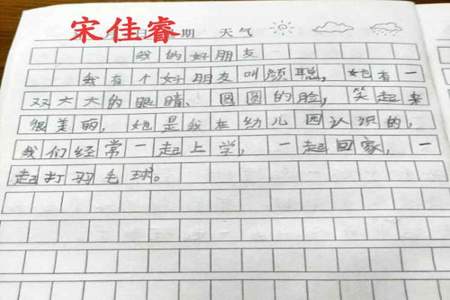 宋佳睿
期 天气
我的好朋友
我有个好朋友叫颜聪，她有一
双大大的眼睛、圆圆的脸，笑起来
很美丽，她是我在幼儿园认识的，
我们经常一起上学，一起回家，一
起打羽毛球。